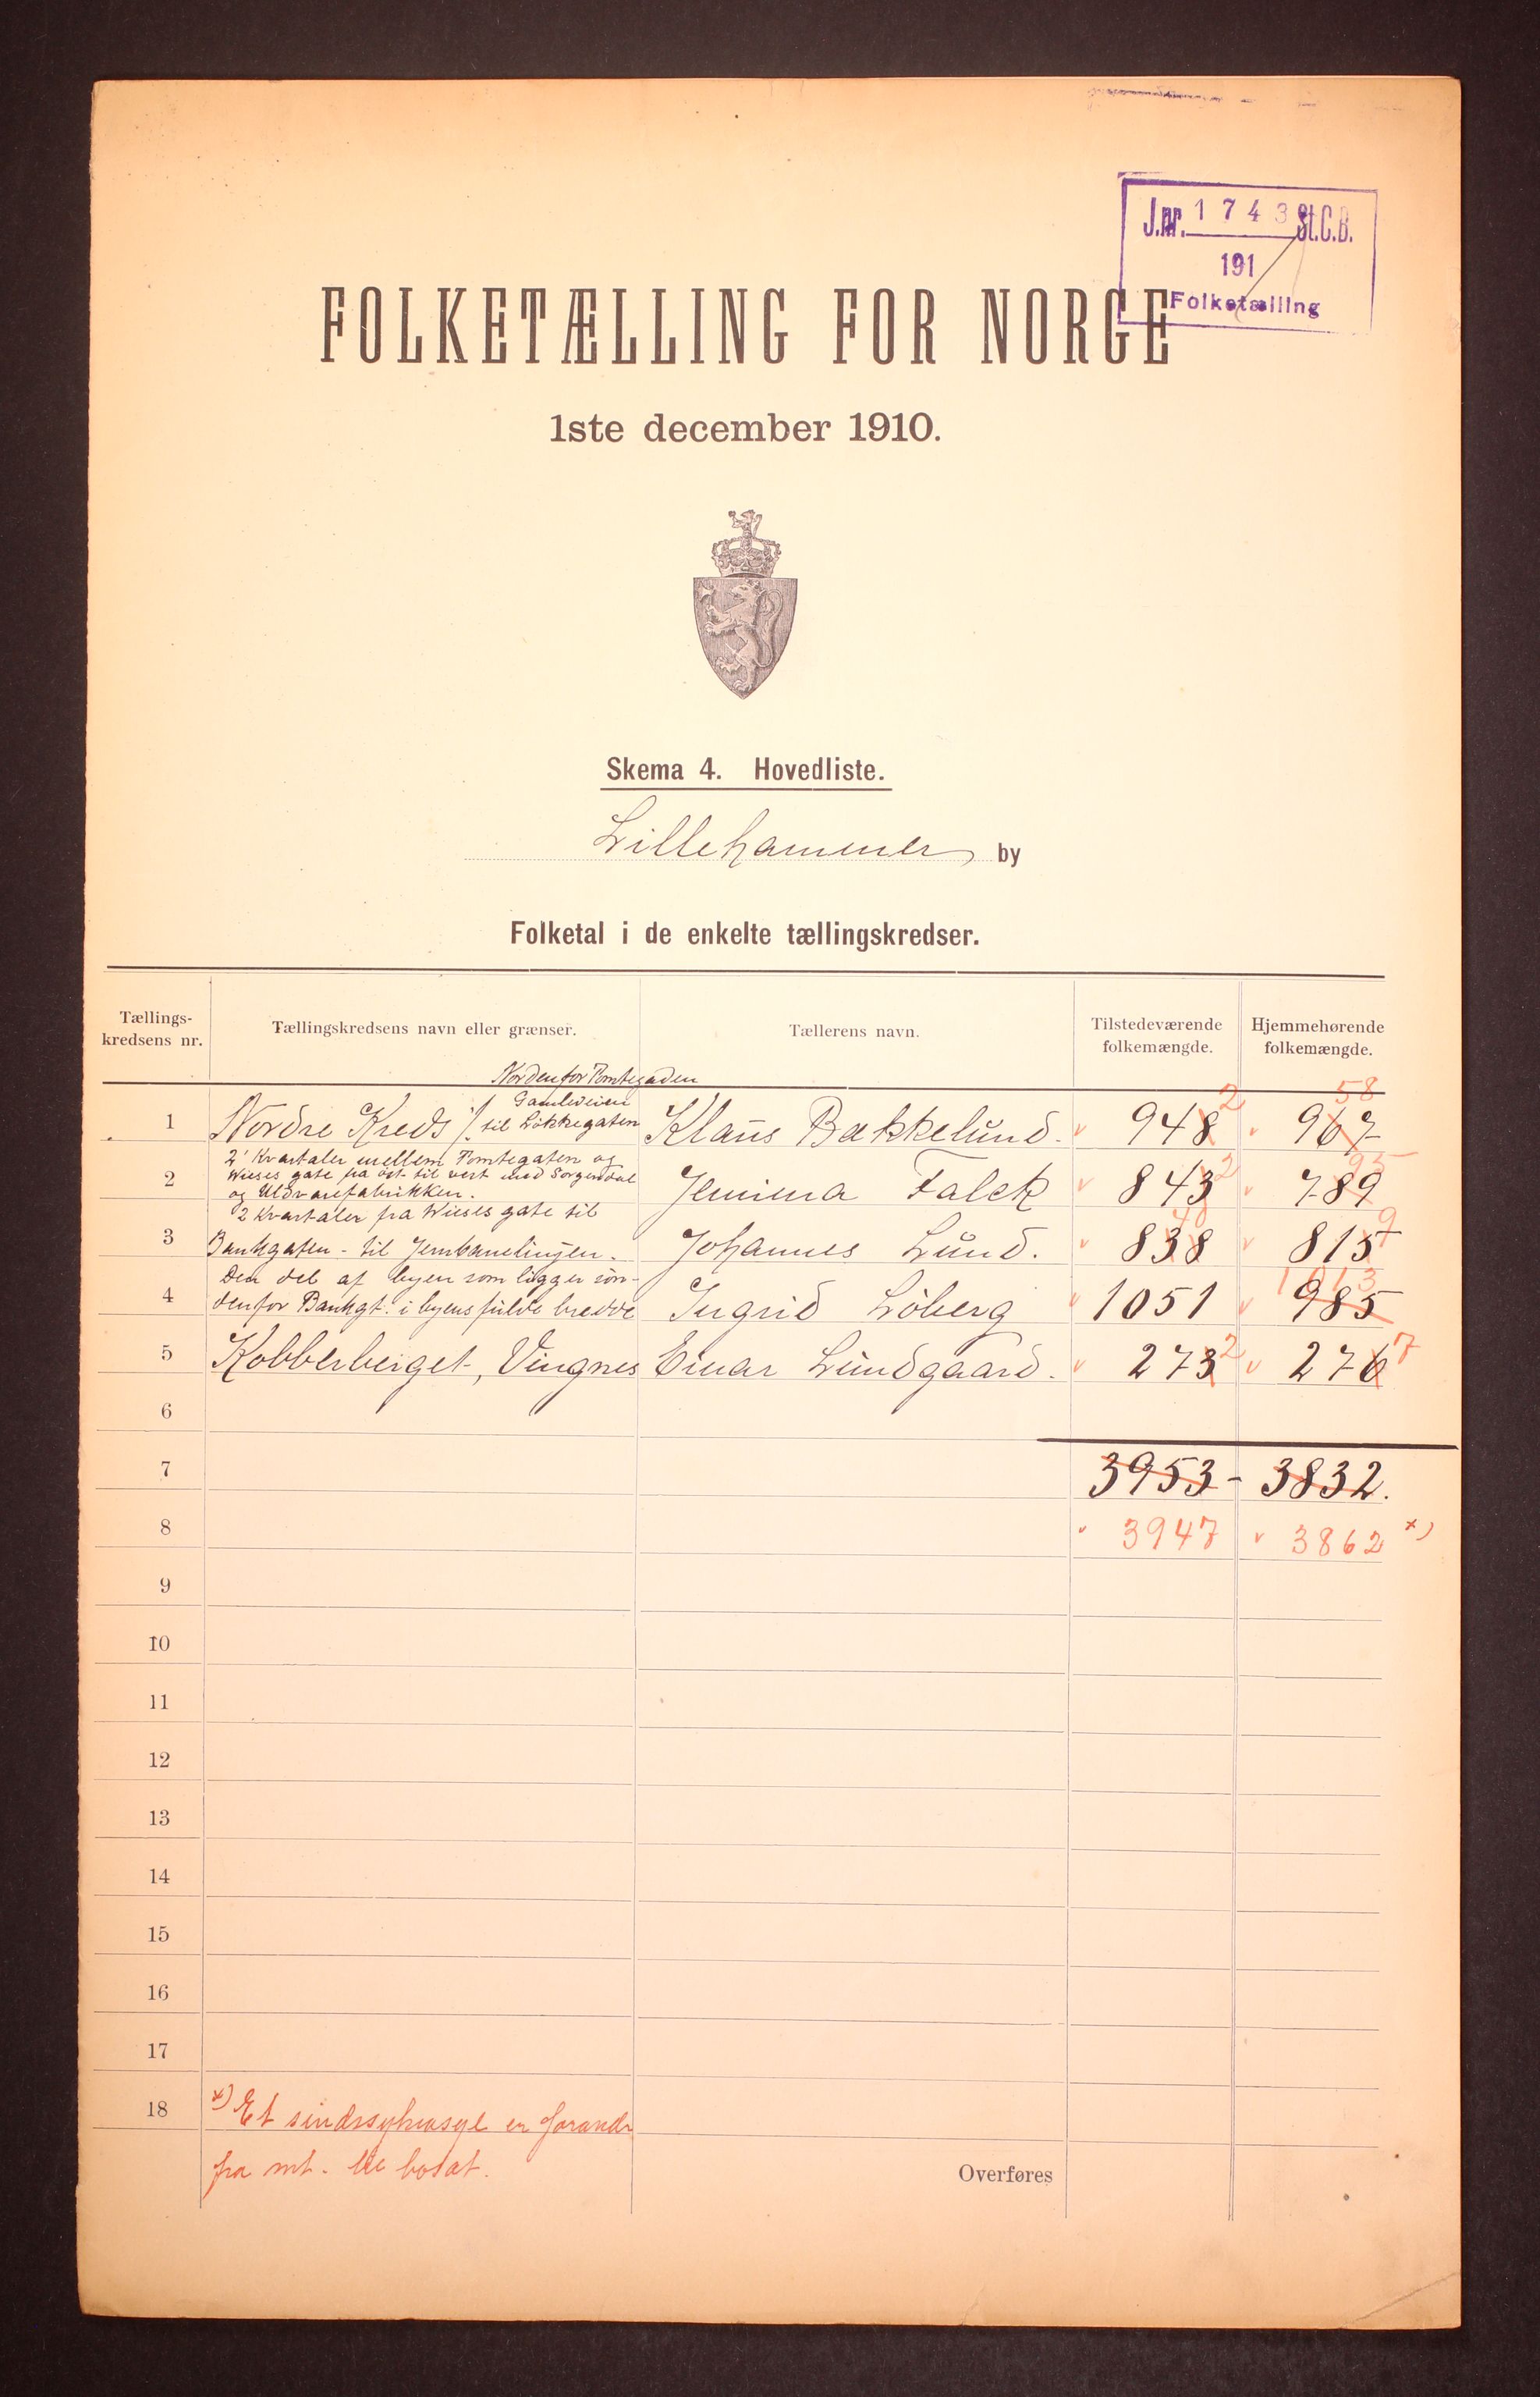 J.nr. 1743 St.C.B.
191
Folketælling
FOLKETÆLLING FOR NORGE
1ste december 1910.
Skema 4. Hovedliste.
Lillehammer by
Folketal i de enkelte tællingskredser.
Tællings-
kredsens nr.
Tællingskredsens navn eller grænser.
Tællerens navn.
Tilstedeværende
folkemængde.
Hjemmehørende
folkemængde.
Nordenfor Tomtegaden
Gamleveien
1 Nordre Kreds ⁒ til Løkkegaten Klaus Bakkelund. 948 2 967 58
2 Kvartaler mellem Tomtegaten og
Wieses gate fra öst til vest med Sorgendal
og Uldvarefabrikken.
2 Jemima Falck 843 2 789 95
2 Kvartaler fra Wieses gate til
3 Bankgaten - til Jernbanelinjen. Johannes Lund. 838 40 815 9
Den del af byen som ligger søn-
4 denfor Bankgt. i byens fulde bredde Ingrid Löberg 1051 985 1013
5 Kobberberget, Vingnes Einar Lundgaard. 273 2 276 7
6
7 3953 - 3832.
8 3947 3862 x)
9
10
11
12
13
14
15
16
17
18 x) Et sindssykeasyl er forandr
fra mt. til bosat.
Overføres